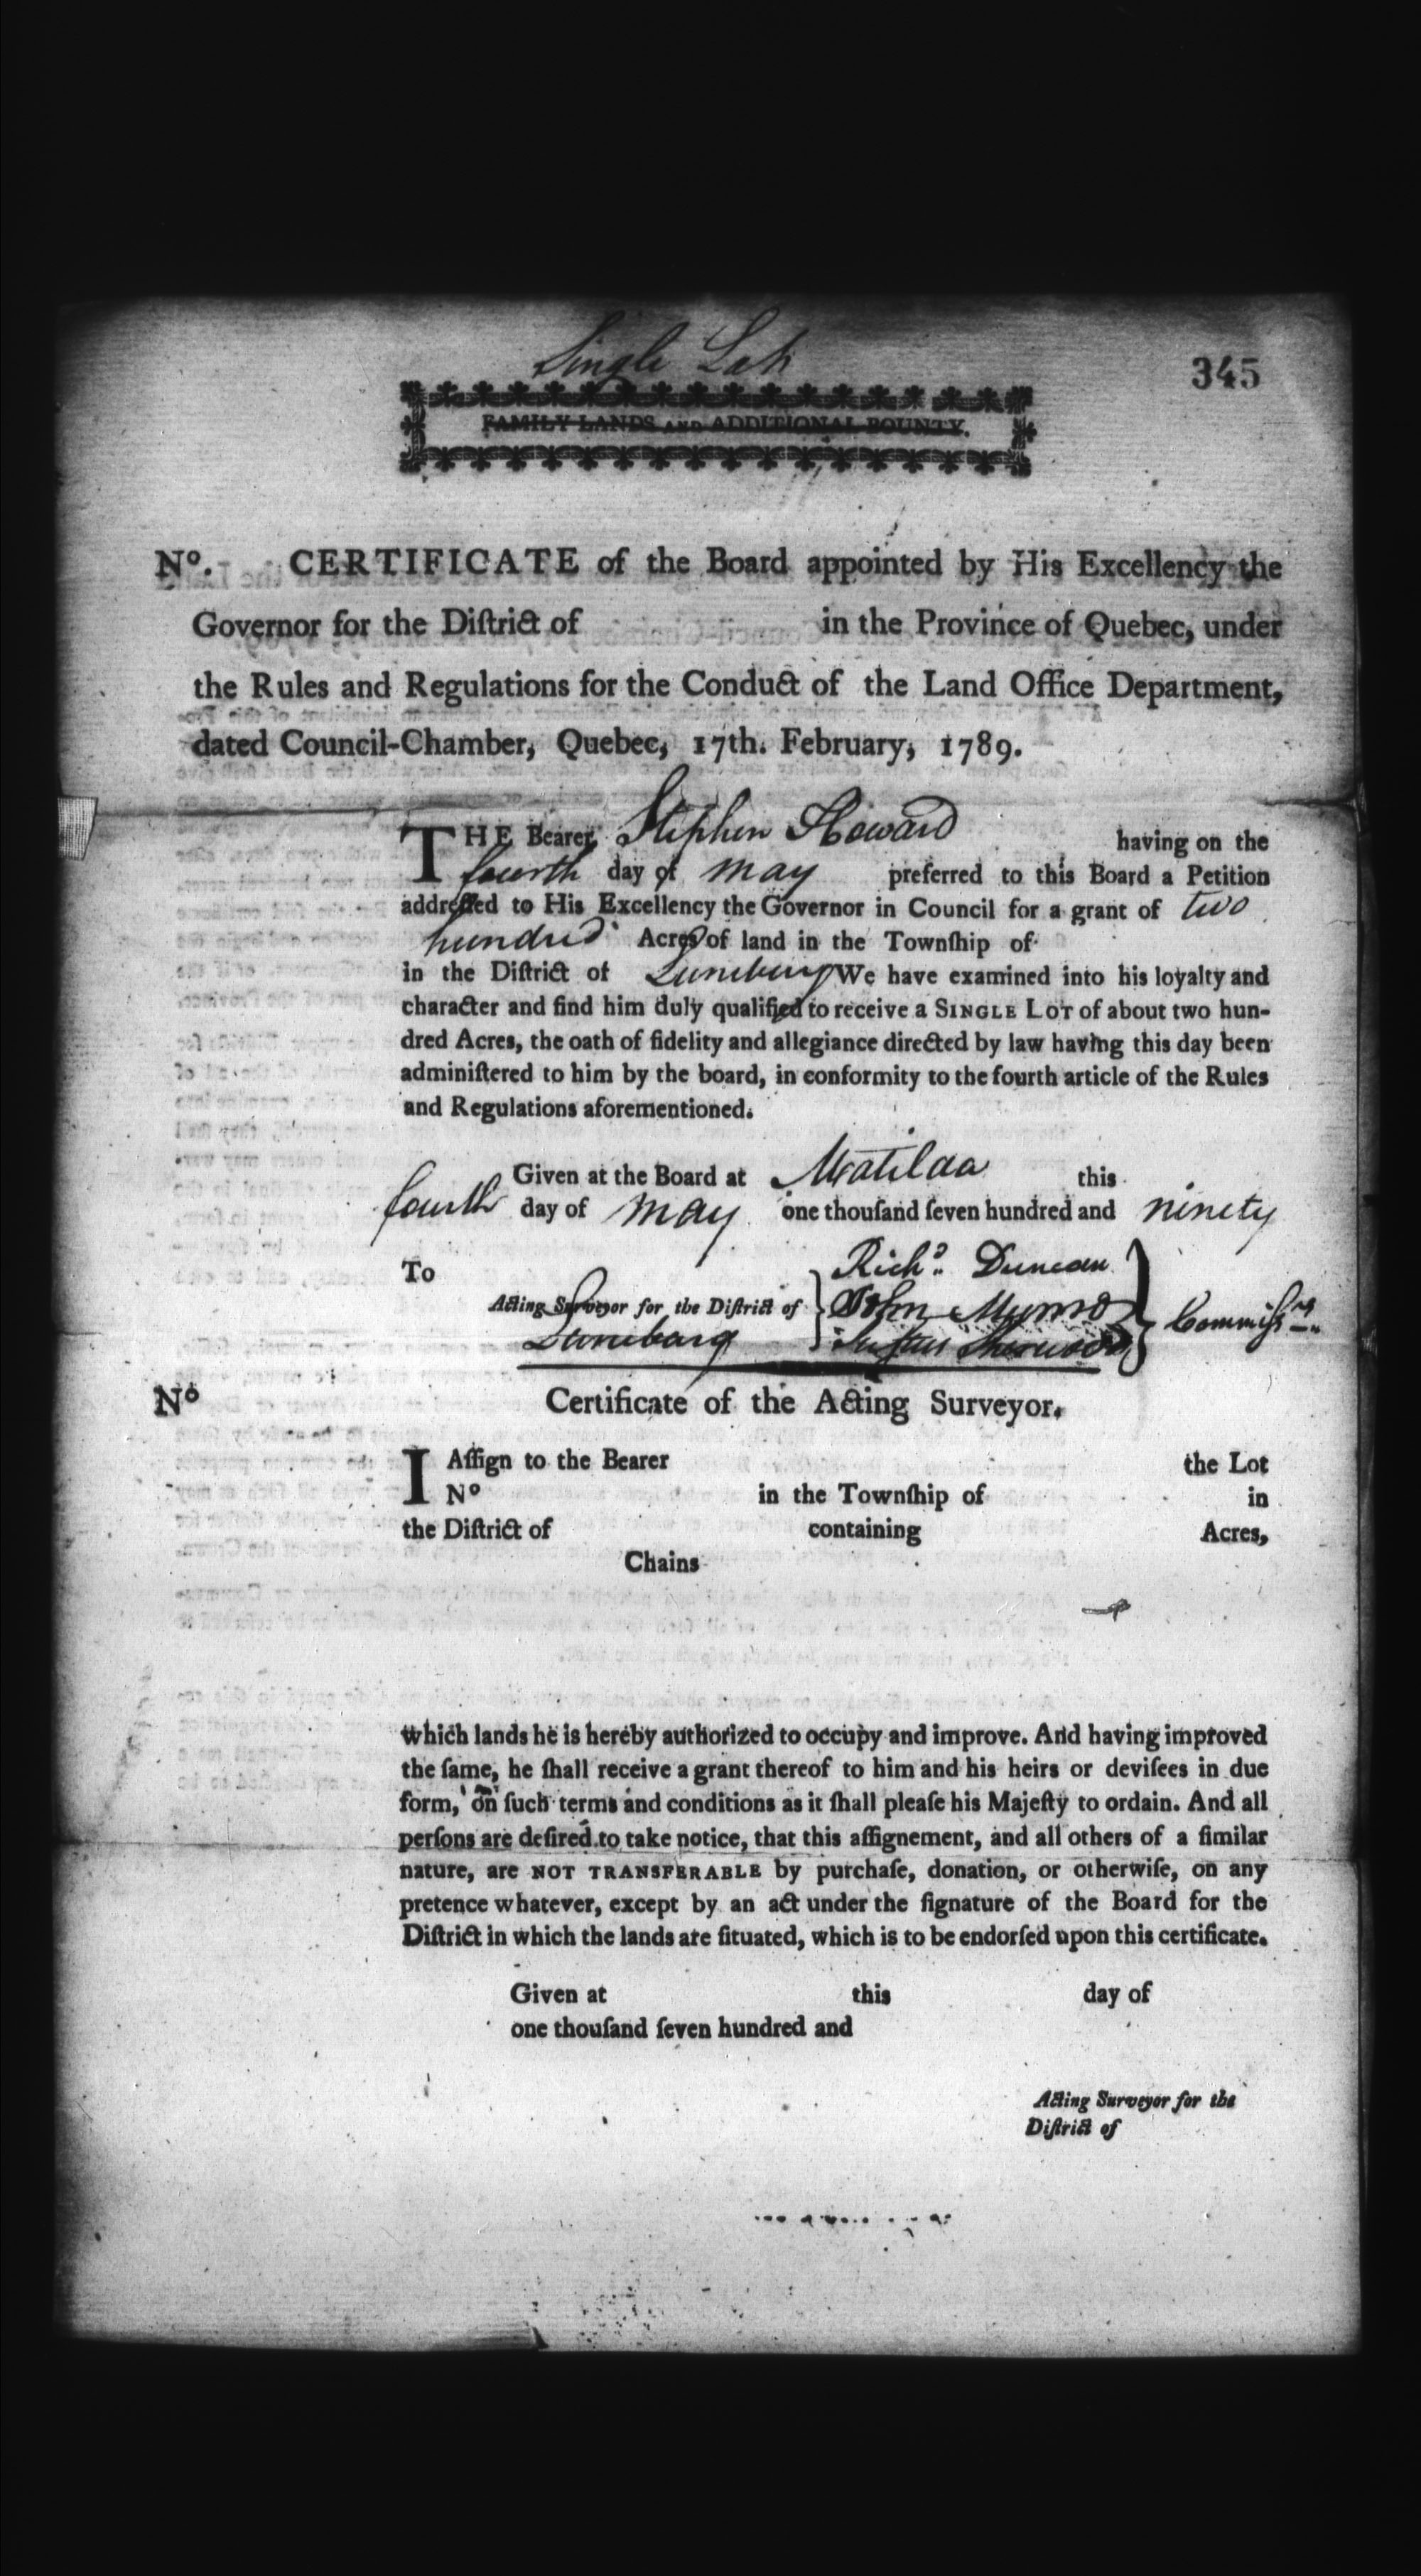 Single Lot
345
FAMILY LANDS AND ADDITIONAL BOUNTY.
No. CERTIFICATE of the Board appointed by His Excellency the
Governor for the Diſtrict of in the Province of Quebec, under
the Rules and Regulations for the Conduct of the Land Office Department,
dated Council-Chamber, Quebec, 17th. February, 1789.
THE Bearer Stephen Howard having on the
fourth day of may preferred to this Board a Petition
addreſſed to His Excellency the Governor in Council for a grant of two
hundred Acres of land in the Townſhip of
in the Diſtrict of Luneburg We have examined into his loyalty and
character and find him duly qualified to receive a SINGLE LOT of about two hun-
dred Acres, the oath of fidelity and allegiance directed by law having this day been
adminiſtered to him by the board, in conformity to the fourth article of the Rules
and Regulations aforementioned.
Given at the Board at Matilda this
fourth day of may one thouſand ſeven hundred and ninety
To Richd. Duncan
Acting Surveyor for the Diſtrict of John Munro Commissrs.
Luneburg Justus Sherwood
No Certificate of the Acting Surveyor.
I Aſſign to the Bearer the Lot
No in the Townſhip of in
the Diſtrict of containing Acres,
Chains
which lands he is hereby authorized to occupy and improve. And having improved
the ſame, he ſhall receive a grant thereof to him and his heirs or deviſees in due
form, on ſuch terms and conditions as it ſhall pleaſe his Majeſty to ordain. And all
perſons are deſired to take notice, that this aſſignement, and all others of a ſimilar
nature, are NOT TRANSFERABLE by purchaſe, donation, or otherwiſe, on any
pretence whatever, except by an act under the ſignature of the Board for the
Diſtrict in which the lands are ſituated, which is to be endorſed upon this certificate.
Given at this day of
one thouſand ſeven hundred and
Acting Surveyor for the
Diſtrict of